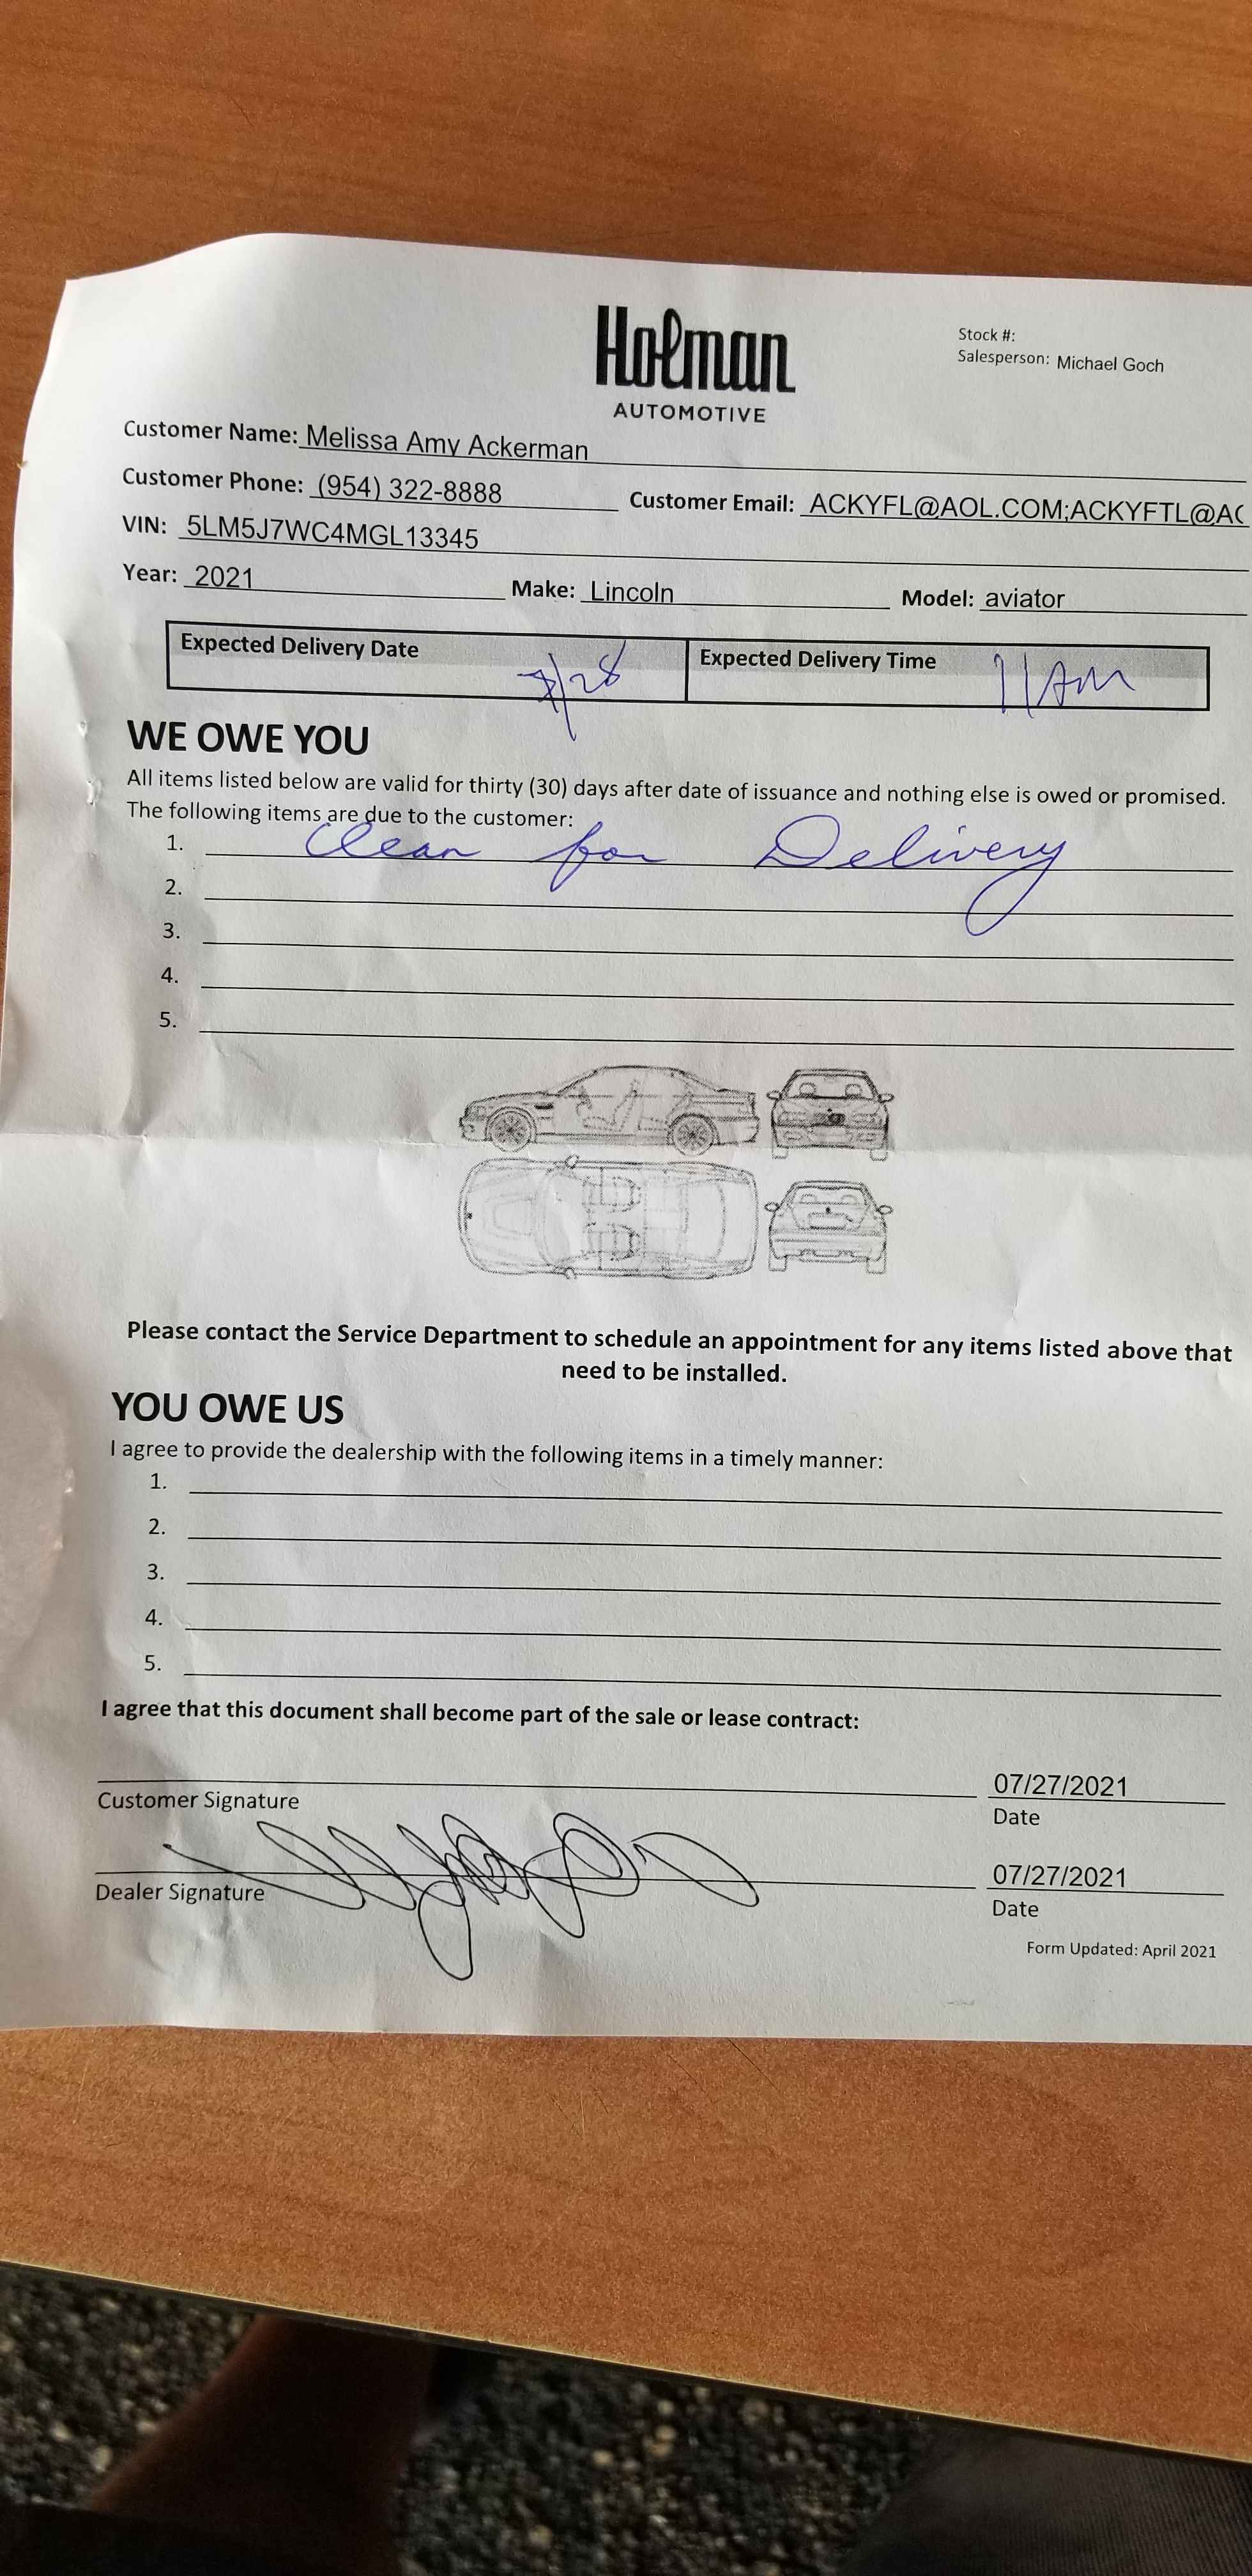 Holman
AUTOMOTIVE
Stock #:
Salesperson: Michael Goch
Customer Name: Melissa Amy Ackerman
Customer Phone: (954) 322-8888 Customer Email: ACKYFL@AOL.COM;ACKYFTL@AO
VIN: 5LM5J7WC4MGL13345
Year: 2021 Make: Lincoln Model: aviator
Expected Delivery Date 7/28 Expected Delivery Time 11 AM
WE OWE YOU
All items listed below are valid for thirty (30) days after date of issuance and nothing else is owed or promised.
The following items are due to the customer:
1. Clean for Delivery
2.
3.
4.
5.
Please contact the Service Department to schedule an appointment for any items listed above that
need to be installed.
YOU OWE US
I agree to provide the dealership with the following items in a timely manner:
1.
2.
3.
4.
5.
I agree that this document shall become part of the sale or lease contract:
07/27/2021
Customer Signature Date
07/27/2021
Dealer Signature Date
Form Updated: April 2021